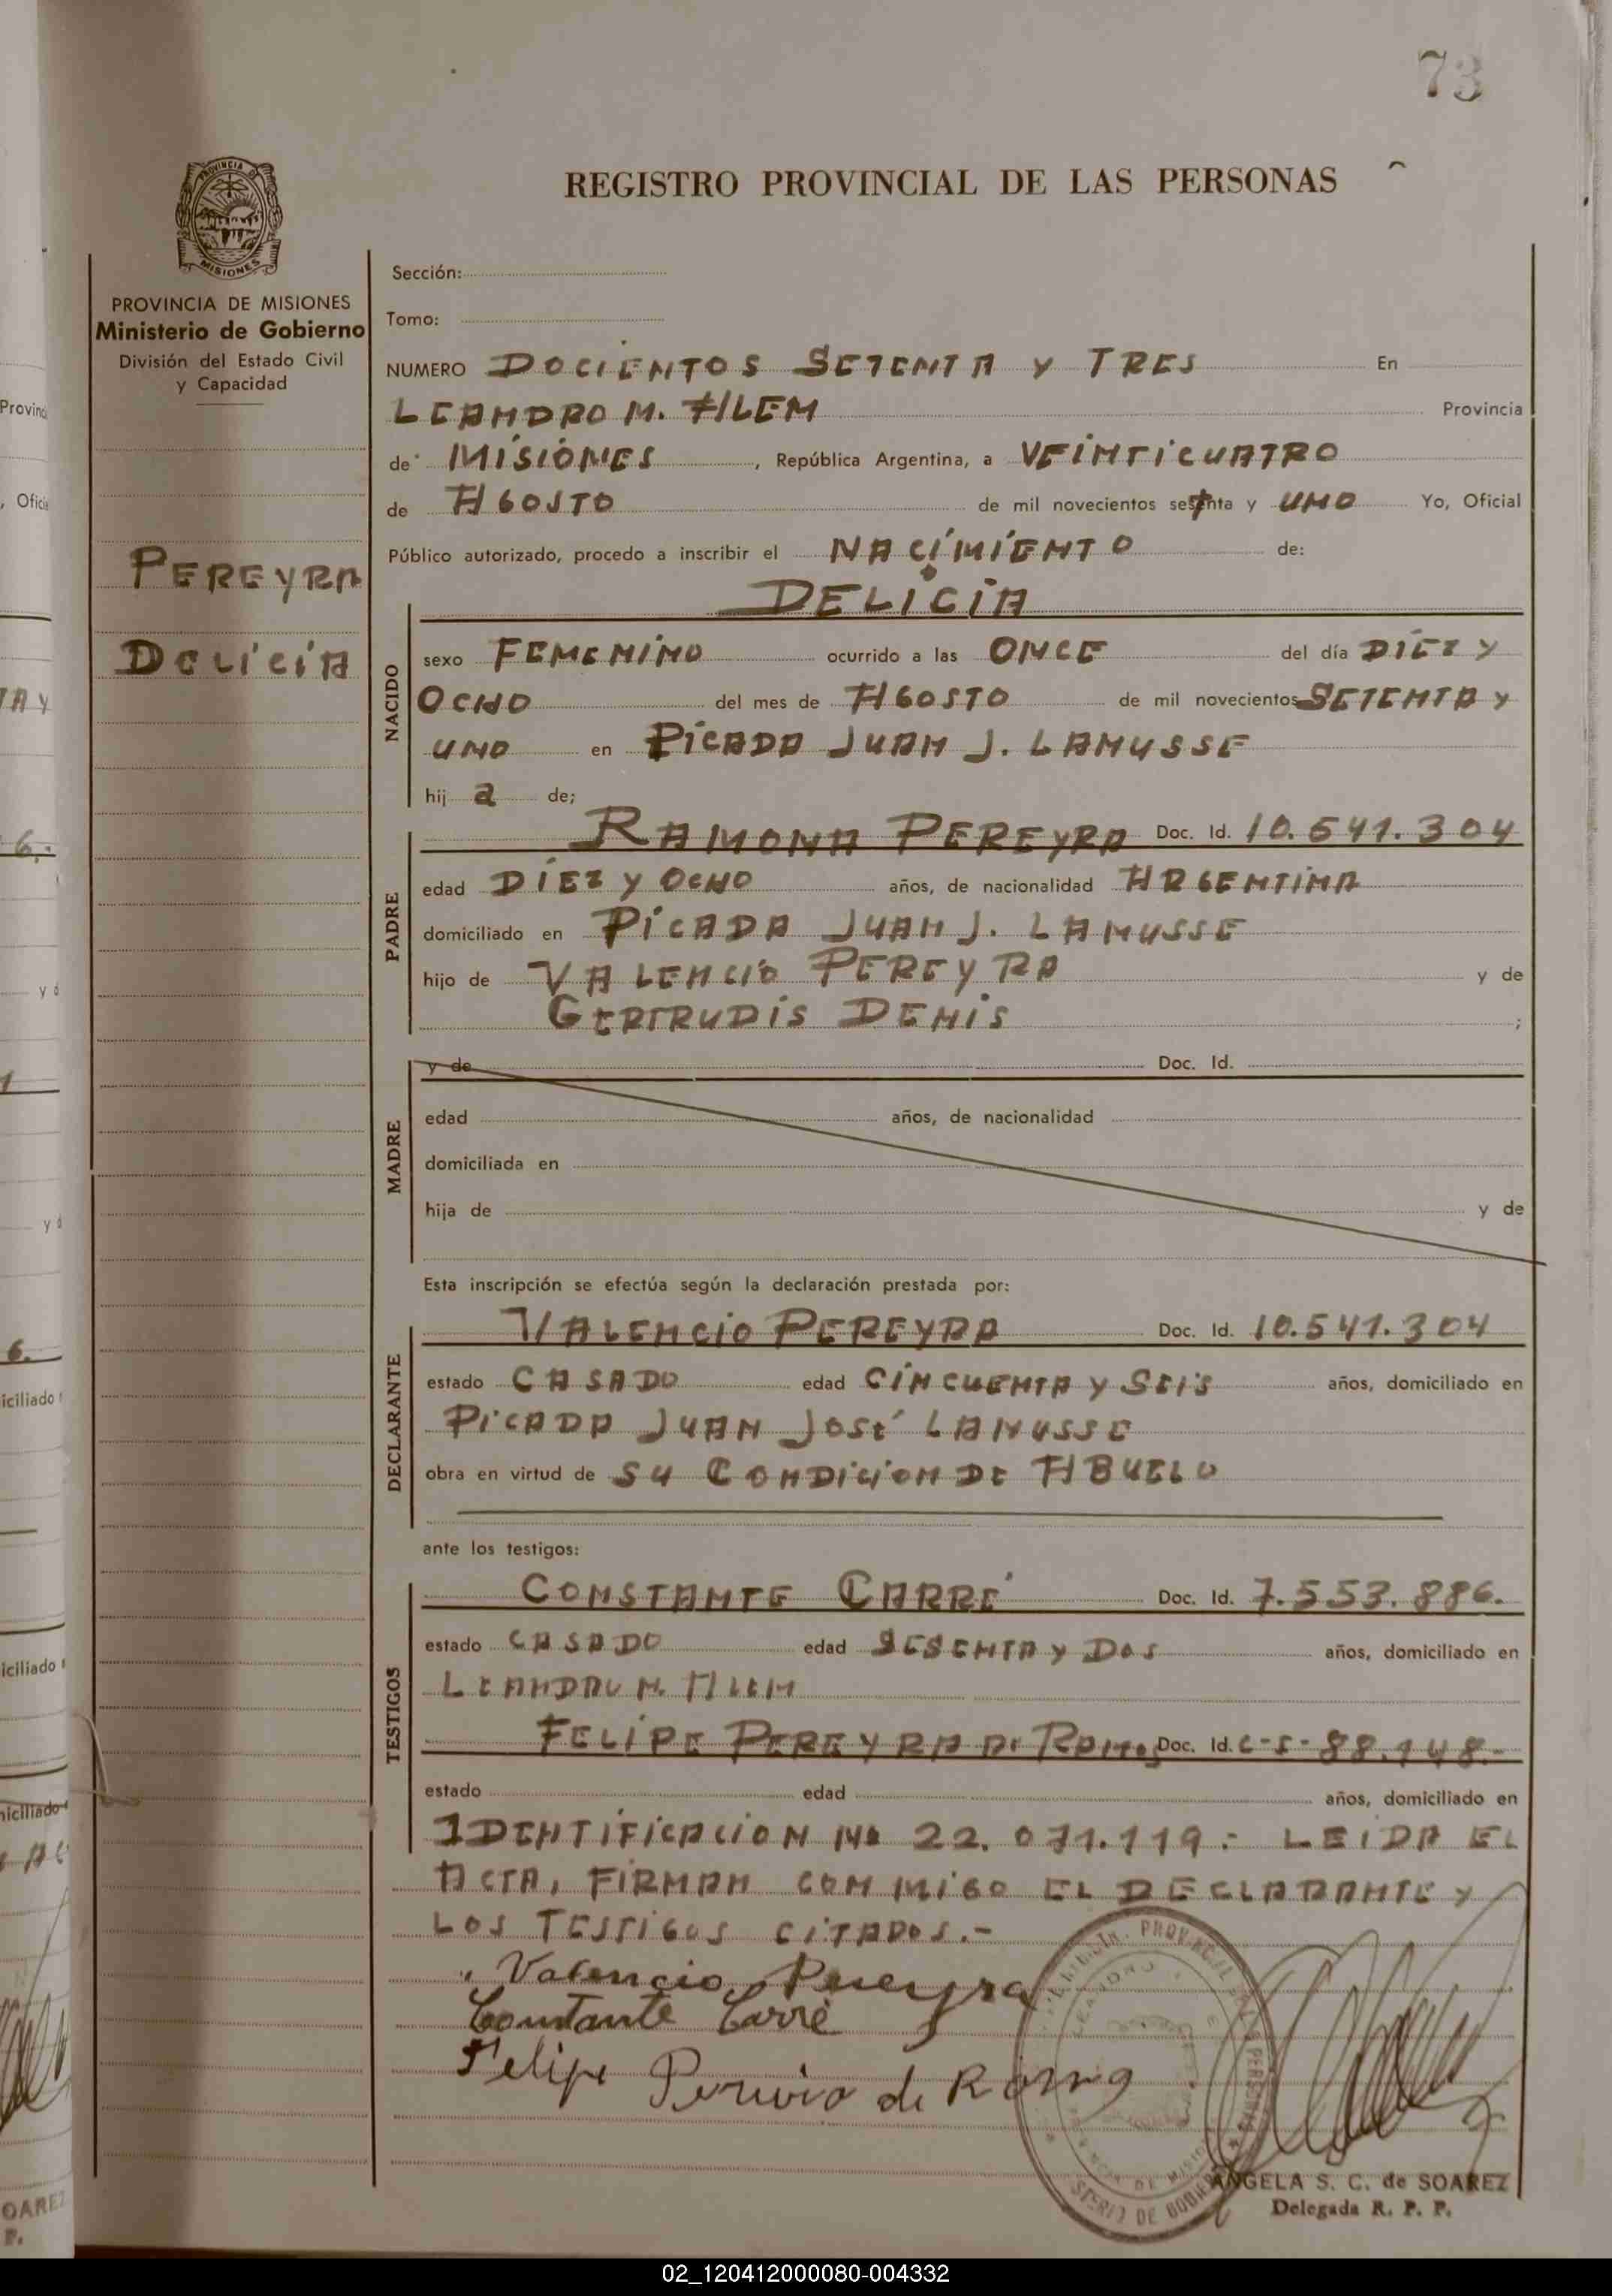 73
REGISTRO PROVINCIAL DE LAS PERSONAS
PROVINCIA DE MISIONES
Ministerio de Gobierno
División del Estado Civil
y Capacidad
PEREYRA
DELICIA
Sección:
Tomo:
NUMERO DOCIENTOS SETENTA Y TRES En
LEANDRO N. ALEM Provincia
de MISIONES, República Argentina, a VEINTICUATRO
de AGOSTO de mil novecientos setenta y UNO Yo, Oficial
Público autorizado, procedo a inscribir el NACIMIENTO de:
DELICIA
NACIDO
sexo FEMENINO ocurrido a las ONCE del día DIEZ Y
OCHO del mes de AGOSTO de mil novecientos SETENTA Y
UNO en PICADA JUAN J. LANUSSE
hij a de;
RAMONA PEREYRA Doc. Id. 10.541.304
PADRE
edad DIEZ Y OCHO años, de nacionalidad ARGENTINA
domiciliado en PICADA JUAN J. LANUSSE
hijo de VALENCIO PEREYRA y de
GERTRUDIS DENIS ;
MADRE
y de Doc. Id.
edad años, de nacionalidad
domiciliada en
hija de y de
Esta inscripción se efectúa según la declaración prestada por:
VALENCIO PEREYRA Doc. Id. 10.541.304
DECLARANTE
estado CASADO edad CINCUENTA Y SEIS años, domiciliado en
PICADA JUAN JOSÉ LANUSSE
obra en virtud de SU CONDICION DE ABUELO
ante los testigos:
CONSTANTE CARRÉ Doc. Id. 7.553.886.
TESTIGOS
estado CASADO edad SESENTA Y DOS años, domiciliado en
LEANDRO N. ALEM
FELIPE PEREYRA DE Doc. Id. 88.148.-
estado edad años, domiciliado en
IDENTIFICACION Nº 22.071.119.- LEIDA EL
ACTA, FIRMAN CONMIGO EL DECLARANTE Y
LOS TESTIGOS CITADOS.-
Valencio Pereyra
Constante Carré
Felipe de
ANGELA S. C. de SOAREZ
Delegada R. P. P.
02_120412000080-004332